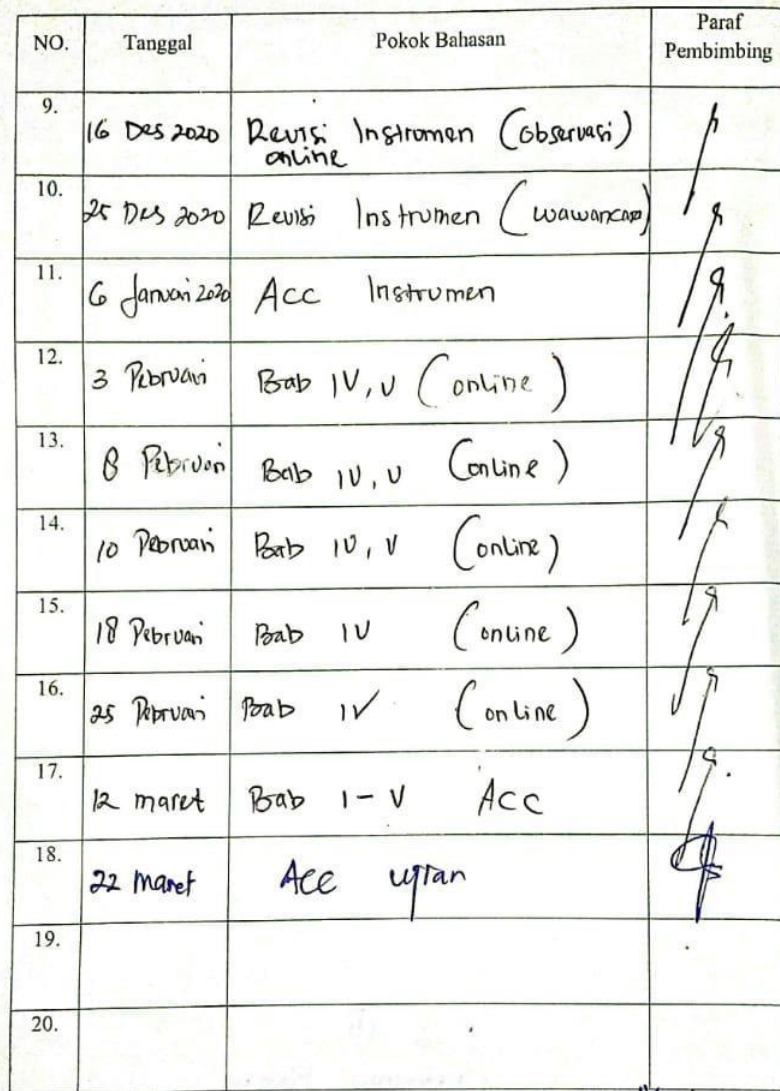 NO. Tanggal Pokok Bahasan Paraf Pembimbing
9. 16 Des 2020 Revisi Instromen (observasi) online
10. 25 Des 2020 Revisi Instrumen (wawancara)
11. 6 Januari 2020 Acc Instrumen
12. 3 Pebruari Bab IV, V (online)
13. 8 Pebruari Bab IV, V (online)
14. 10 Pebruari Bab IV, V (online)
15. 18 Pebruari Bab IV (online)
16. 25 Pebruari Bab IV (online)
17. 12 maret Bab I - V ACC
18. 22 Maret Acc ujian
19.
20.